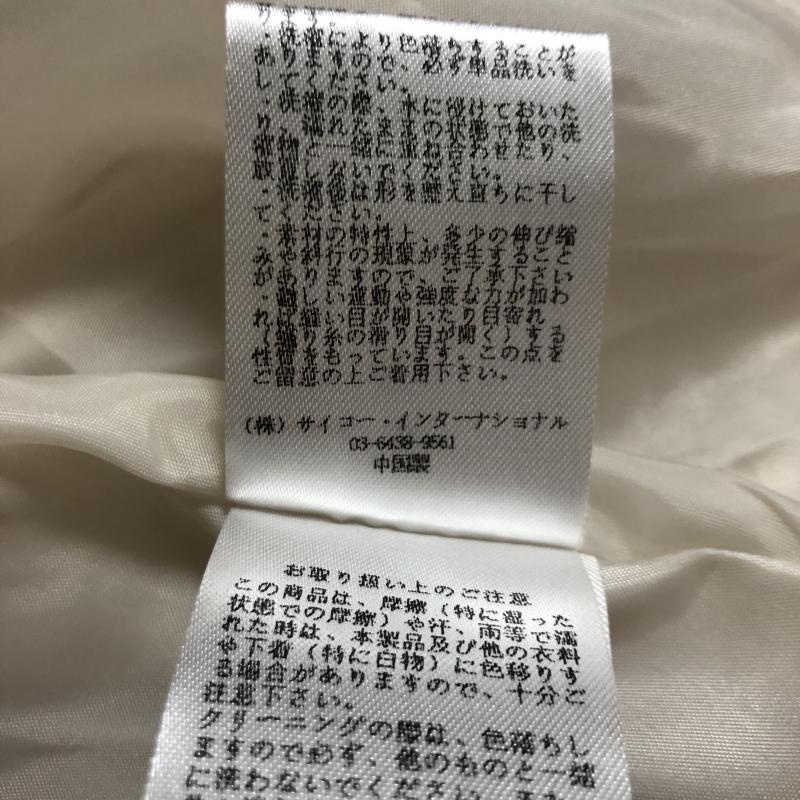 ・洗濯により、色落ちすることが
ありますので、必ず単品洗いを
して下さい。
・洗濯の際、水に浸けておいた
り、濡れたままの状態で他の洗
濯物と一緒に重ね合わせたり、
放置しないでください。
・洗濯後は形を整え直ちに干し
てください。
・素材の特性上、多少の伸び縮
みや斜行の現象が発生すること
がありますので、ご了承下さい
れ(縫い目の滑りが開いたり目寄
性質をもっています。この点を
ご留意の上ご着用下さい。
(株)サイコー・インターナショナル
03-6438-9561
中国製
お取り扱い上のご注意
この商品は、摩擦(特に湿った
状態での摩擦)や汗、雨等で濡
れた時は、本製品及び他の衣料
や下着(特に白物)に色移りす
る場合がありますので、十分ご
注意下さい。
クリーニングの際は、色落ちし
ますので必ず、他のものと一緒
に洗わないでください。また